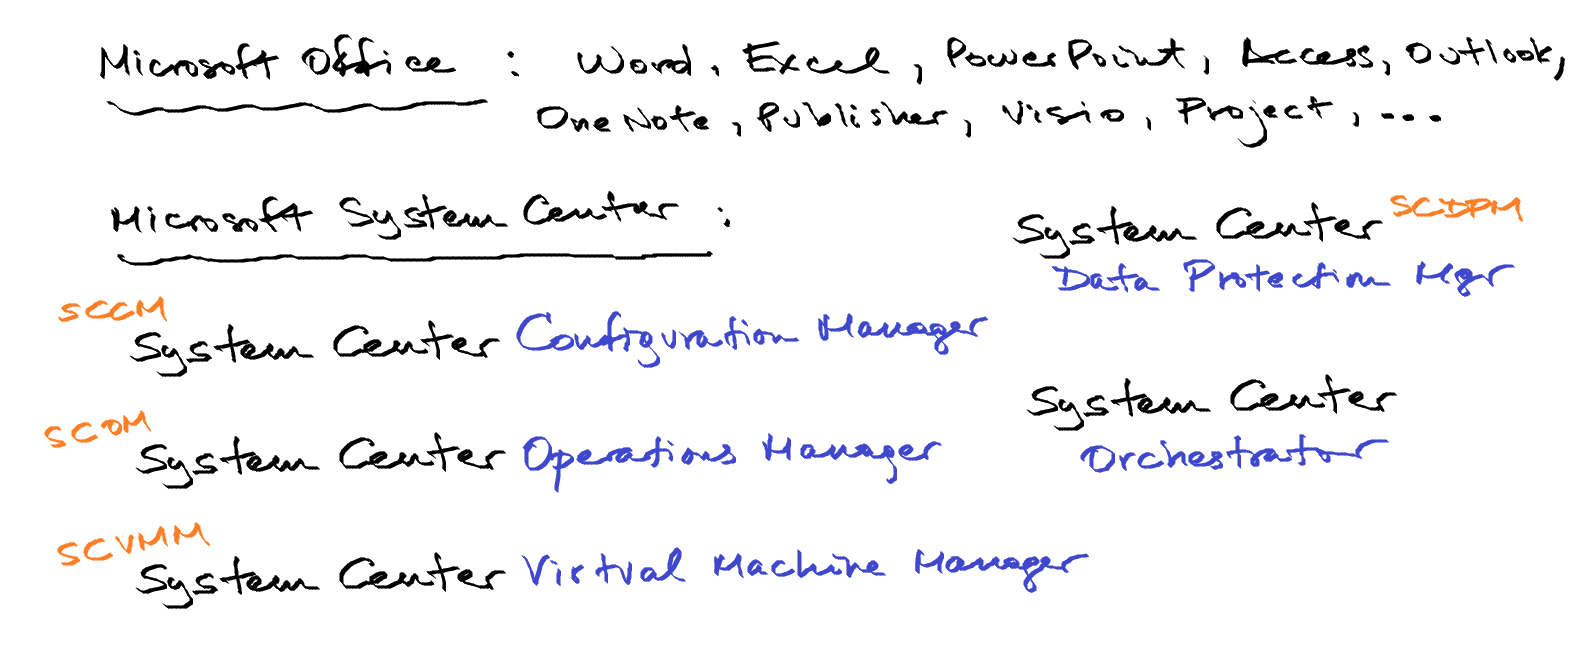 Microsoft Office : Word, Excel, PowerPoint, Access, Outlook,
OneNote, Publisher, Visio, Project, ...
Microsoft System Center :
SCCM
System Center Configuration Manager
SCOM
System Center Operations Manager
SCVMM
System Center Virtual Machine Manager
System Center SCDPM
Data Protection Mgr
System Center
Orchestrator